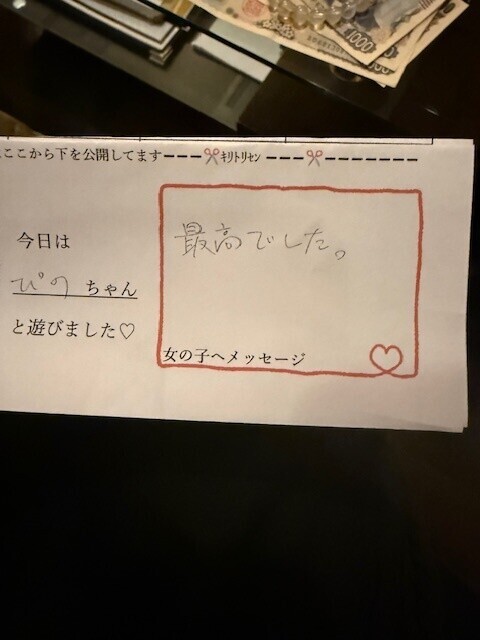 1000
1000
ここから下を公開してます---✂キリトリセン---✂-------
今日は
ぴの ちゃん
と遊びました♡
最高でした。
女の子へメッセージ